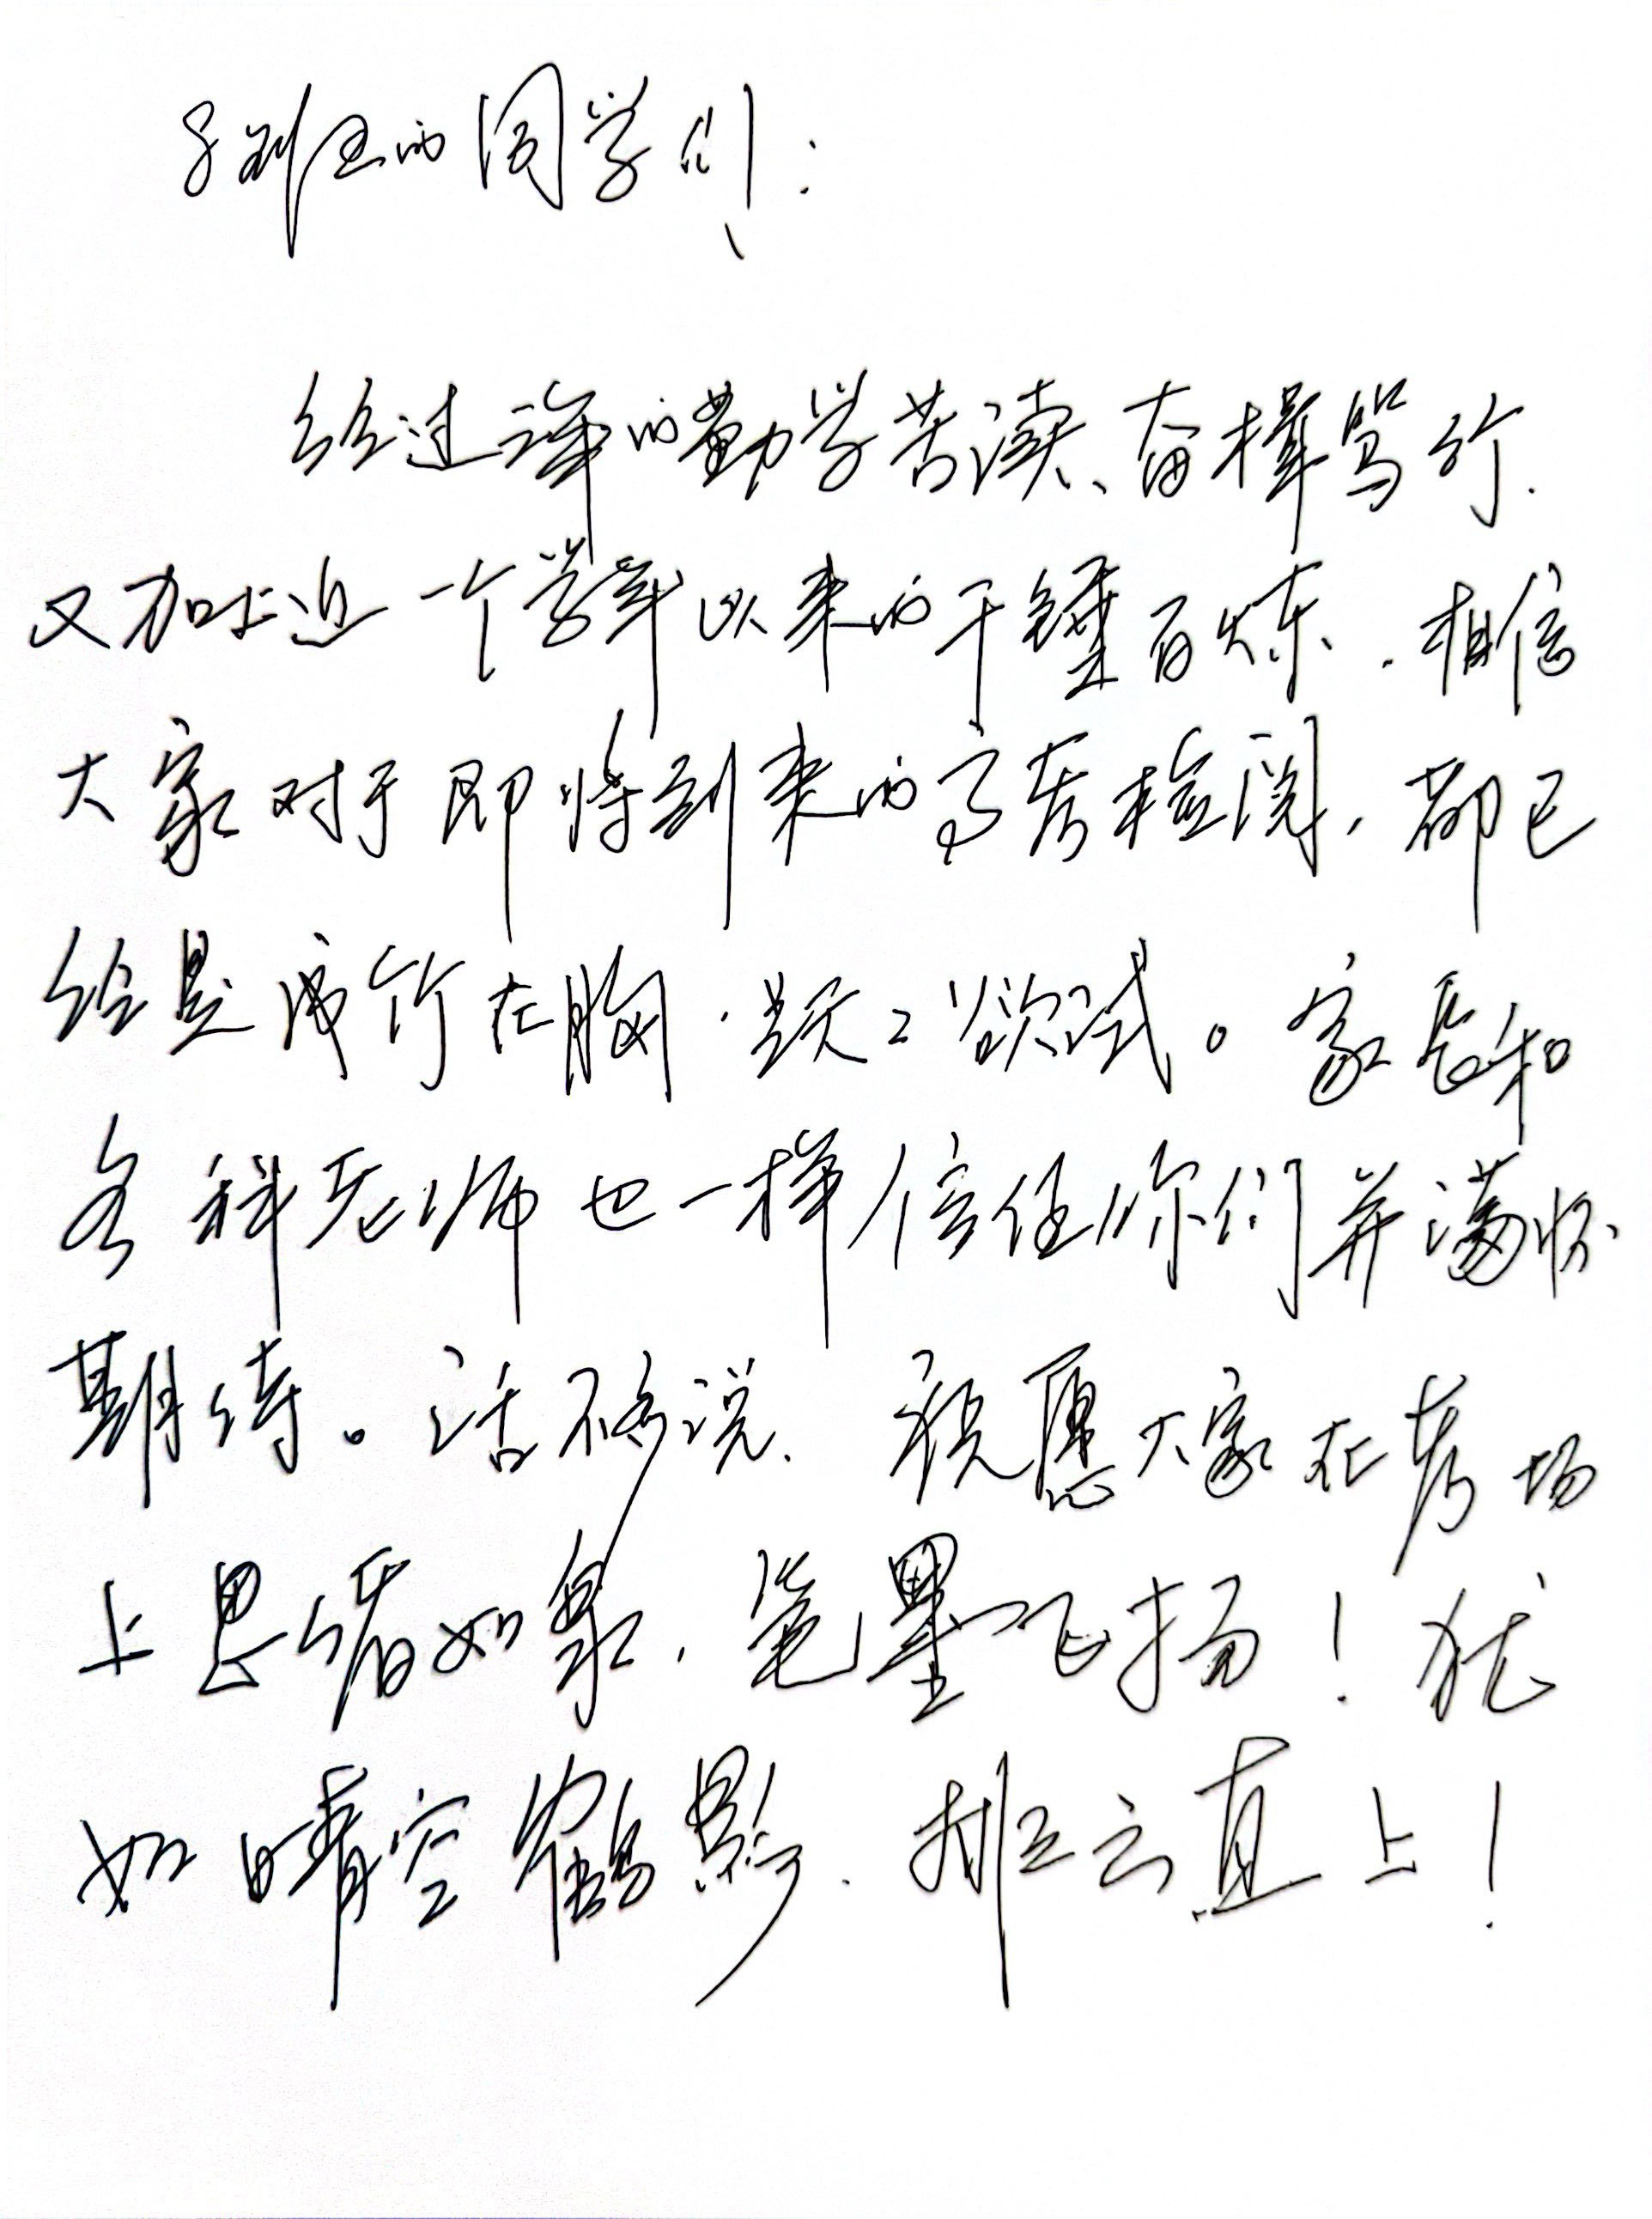 8班的同学们：
经过三年的勤学苦读、奋楫笃行.
又加上近一个学年以来的千锤百炼.相信
大家对于即将到来的高考检阅,都已
经是成竹在胸.跃々欲试。家长和
各科老师也一样信任你们并满怀
期待。话不多说.祝愿大家在考场
上思绪如泉.笔墨飞扬！犹
如晴空鹤影.排云直上！